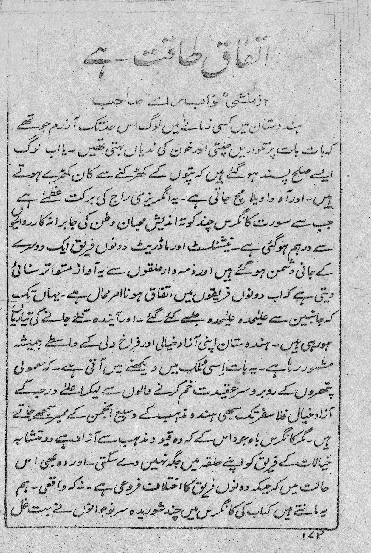 اتفاق طاقت ہے
از منشی نواب رائے صاحب
ہندوستان میں کسی زمانے میں لوگ اس حد تک آزرم جو تھے
کہ بات بات پر تلوار میں چلتی اور خون کی ندیاں بہتی تھیں۔ یا اب لوگ
ایسے صلح پسند ہو گئے ہیں کہ پتوں کے کھڑکنے سے کان کھڑے ہوتے
ہیں۔ اور واویلا مچ جاتی ہے۔ یہ انگریزی راج کی برکت عظمٰے ہے
جب سے سورت کانگرس چند کوتہ اندیش محبان وطن کی جابرانہ کارروائیوں
سے درہم ہو گئی ہے۔ نیشنلسٹ اور ماڈریٹ دونوں فریق ایک دوسرے
کے جانی دشمن ہو گئے ہیں اور ذمہ دار حلقوں سے یہ آواز متواتر سنائی
دیتی ہے کہ اب دونوں فریقوں میں اتفاق ہونا امر محال ہے۔ یہاں تک
کہ جانبین سے علیحدہ علیحدہ جلسے کئے گئے۔ اور آیندہ کئے جانے کی تیاریاں
ہو رہی ہیں۔ ہندوستان اپنی آزاد خیالی اور فراخ دلی کے واسطے ہمیشہ
مشہور رہا ہے۔ یہ بات اسی ملک میں دیکھنے میں آتی ہے۔ کہ معمولی
پتھروں کے روبرو سر عقیدت خم کرنے والوں سے لیکر اعلےٰ درجہ کے
آزاد خیال فلاسفر تک سبھی ہندو مذہب کے وسیع انجمن کے ممبر سمجھے جاتے
ہیں۔ مگر کانگرس باوجود اس کے کہ وہ قیود مذہب سے آزاد ہے دو متشابہ
خیالات کے فریق کو اپنے حلقہ میں جگہ نہیں دے سکتی۔ اور وہ بھی اس
حالت میں کہ جبکہ دونوں فریق کا اختلاف فروعی ہے۔ نہ کہ واقعی۔ ہم
یہ مانتے ہیں کہ اب کی کانگرس میں چند شوریدہ سر نوجوانوں نے بہت غل
۱۷۲